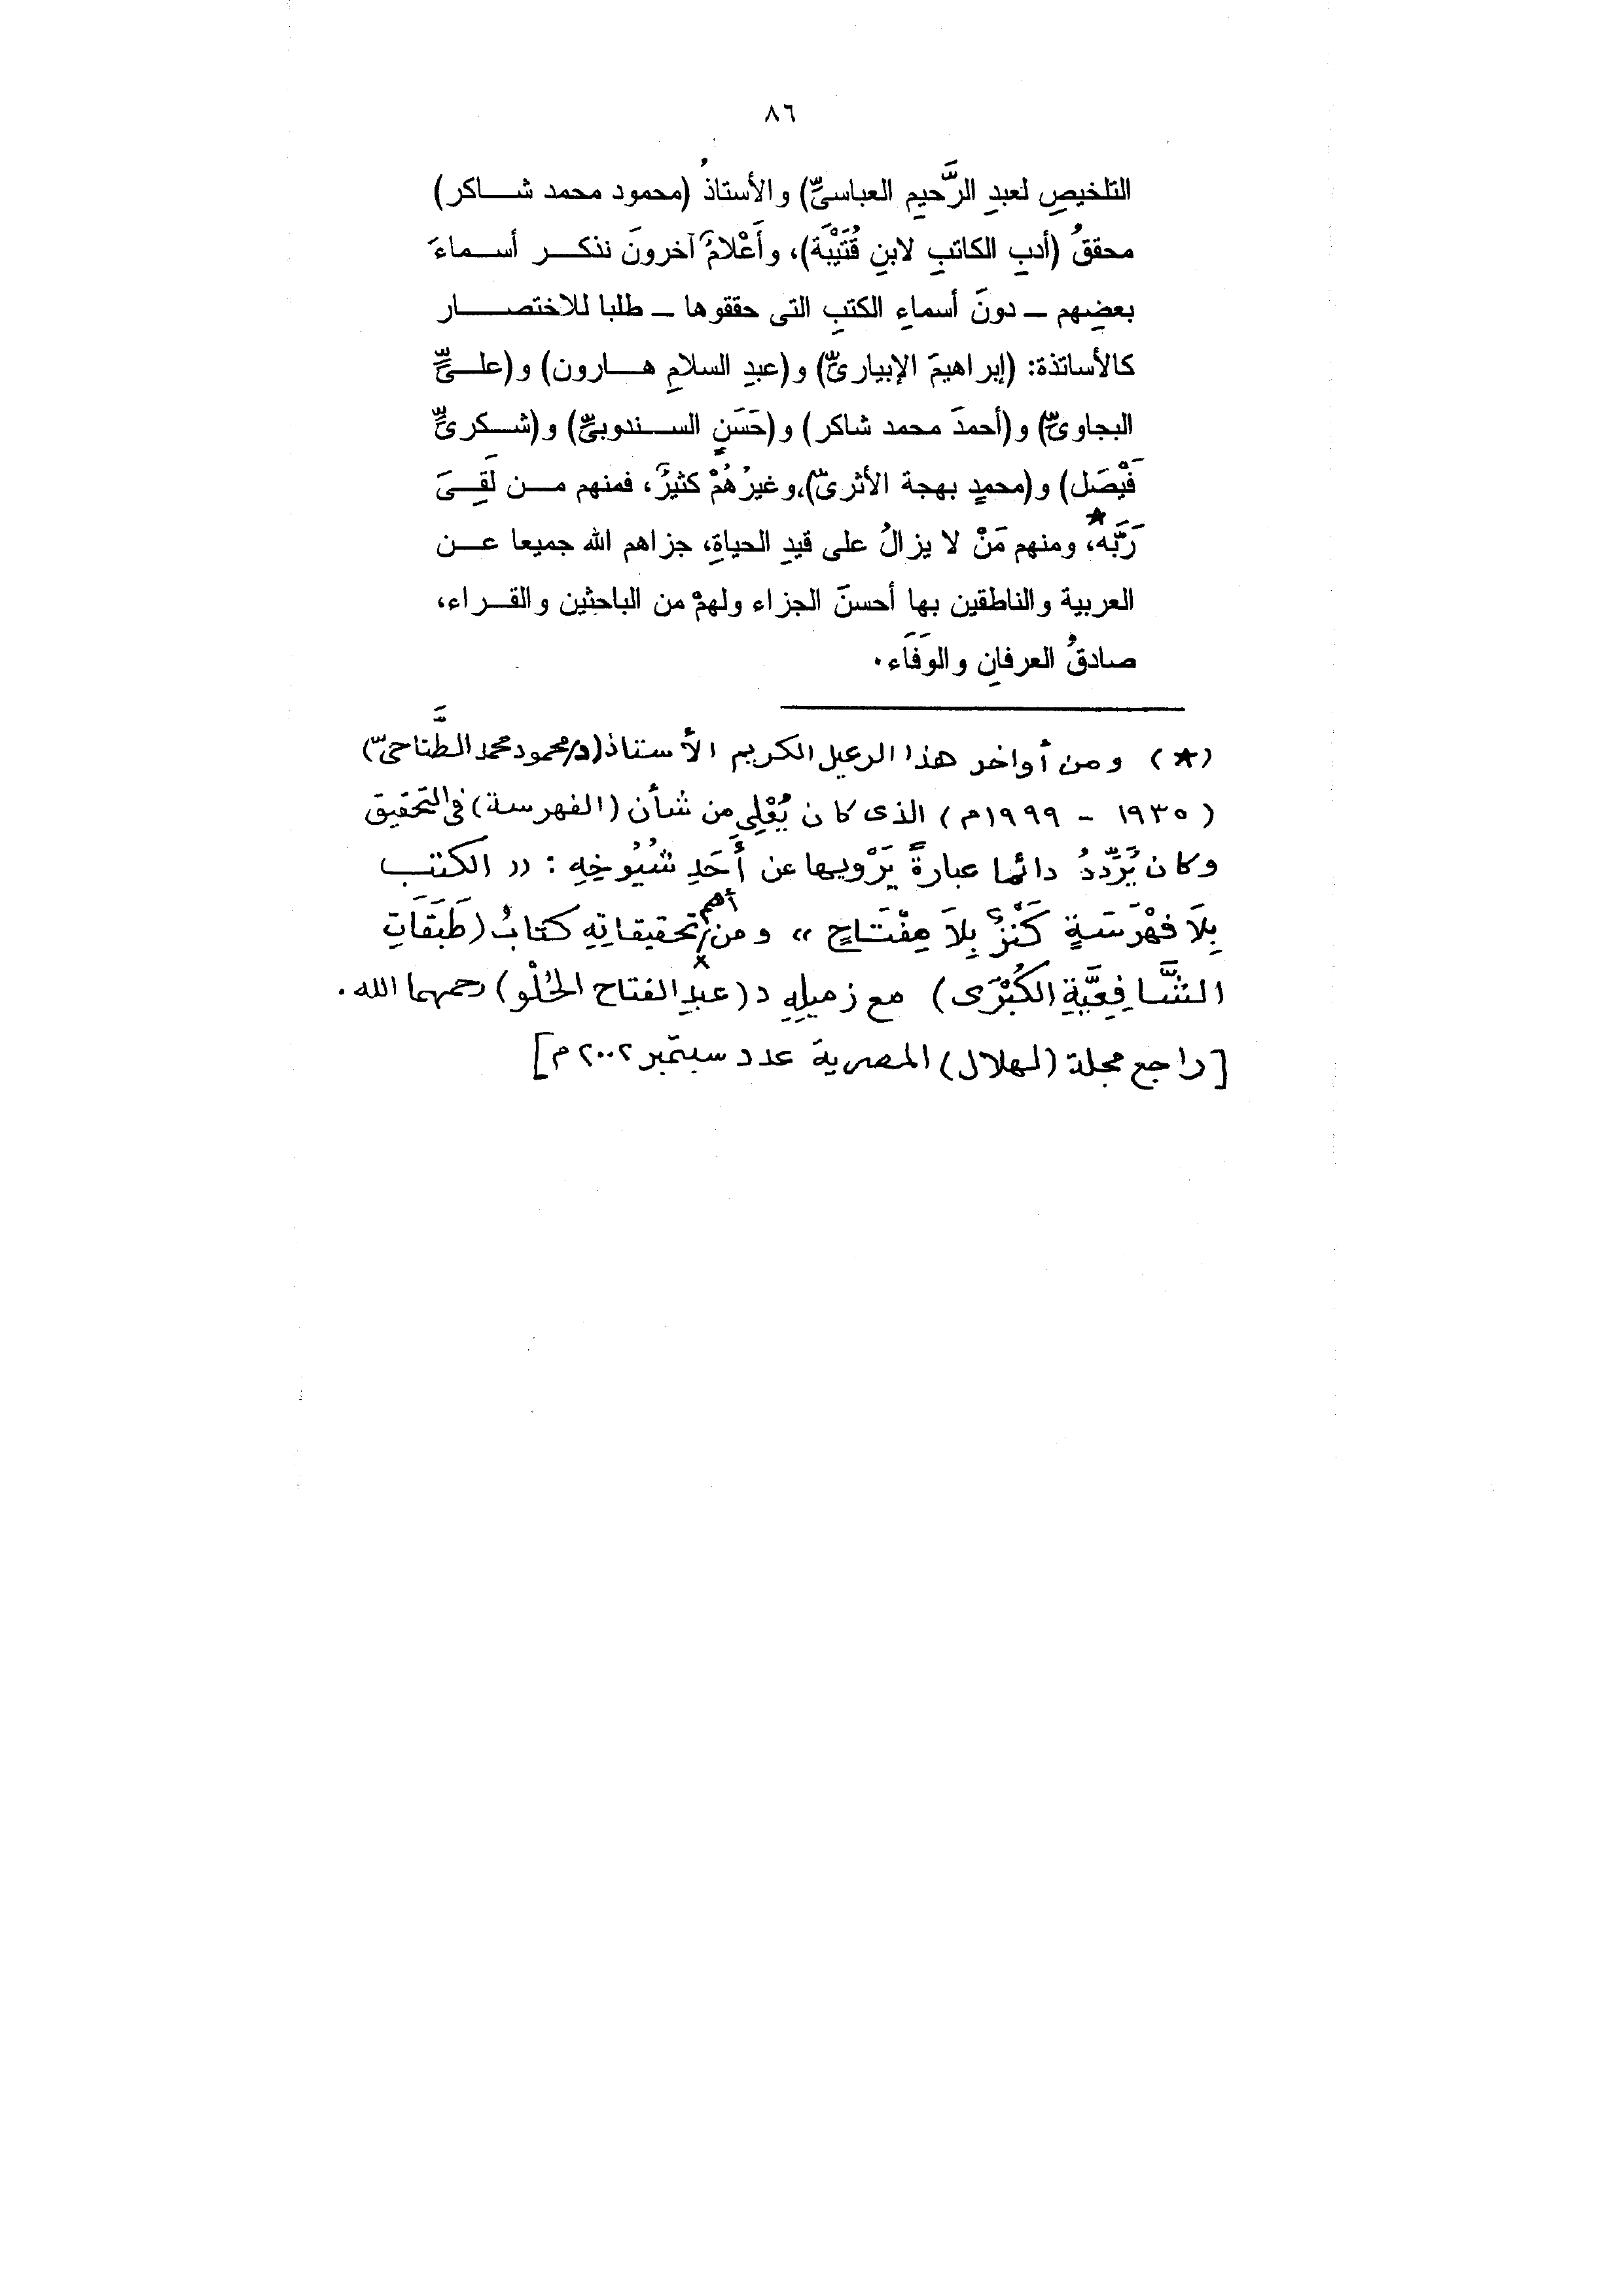 ٨٦
التلخيصِ لعبدِ الرَّحيمِ العباسىِّ) والأستاذُ (محمود محمد شاكر)
محققُ (أدبِ الكاتبِ لابنِ قُتَيْبَة)، وأَعْلامٌ آخرونَ نذكر أسماءَ
بعضِهم – دونَ أسماءِ الكتبِ التى حققوها – طلبا للاختصار
كالأساتذة: (إبراهيمَ الإبيارىِّ) و(عبدِ السلامِ هارون) و(علىٍّ
البجاوىِّ) و(أحمدَ محمد شاكر) و(حَسَنٍ السندوبىِّ) و(شكرىٍّ
فَيْصَل) و(محمدٍ بهجة الأثرىِّ)، وغيرُهُمْ كثيرٌ، فمنهم من لَقِىَ
رَبَّه★، ومنهم مَنْ لا يزالُ على قيدِ الحياةِ، جزاهم الله جميعا عن
العربية والناطقين بها أحسنَ الجزاء ولهمْ من الباحثين والقراء،
صادقُ العرفانِ والوَفَاء.
(★) ومن أواخر هذا الرعيل الكريم الأستاذ (د/محمود محمد الطَّناحىّ)
(١٩٣٥ - ١٩٩٩م) الذى كان يُعْلِى مِن شأن (الفهرسة) فى التحقيق
وكان يُرَدِّدُ دائما عبارةً يَرْويها عن أَحَدِ شُيُوخِهِ : "الكتب
بِلَا فهْرَسَةٍ كَنْزٌ بِلَا مِفْتَاحٍ" ومن أهم تحقيقاتِهِ كتابُ (طَبَقَاتِ
الشَّافِعِيَّةِ الكُبْرَى) مع زميلِهِ د (عبدِ الفتاح الحُلْو) رحمهما الله.
[راجع مجلة (الهلال) المصرية عدد سبتمبر ٢٠٠٢م]